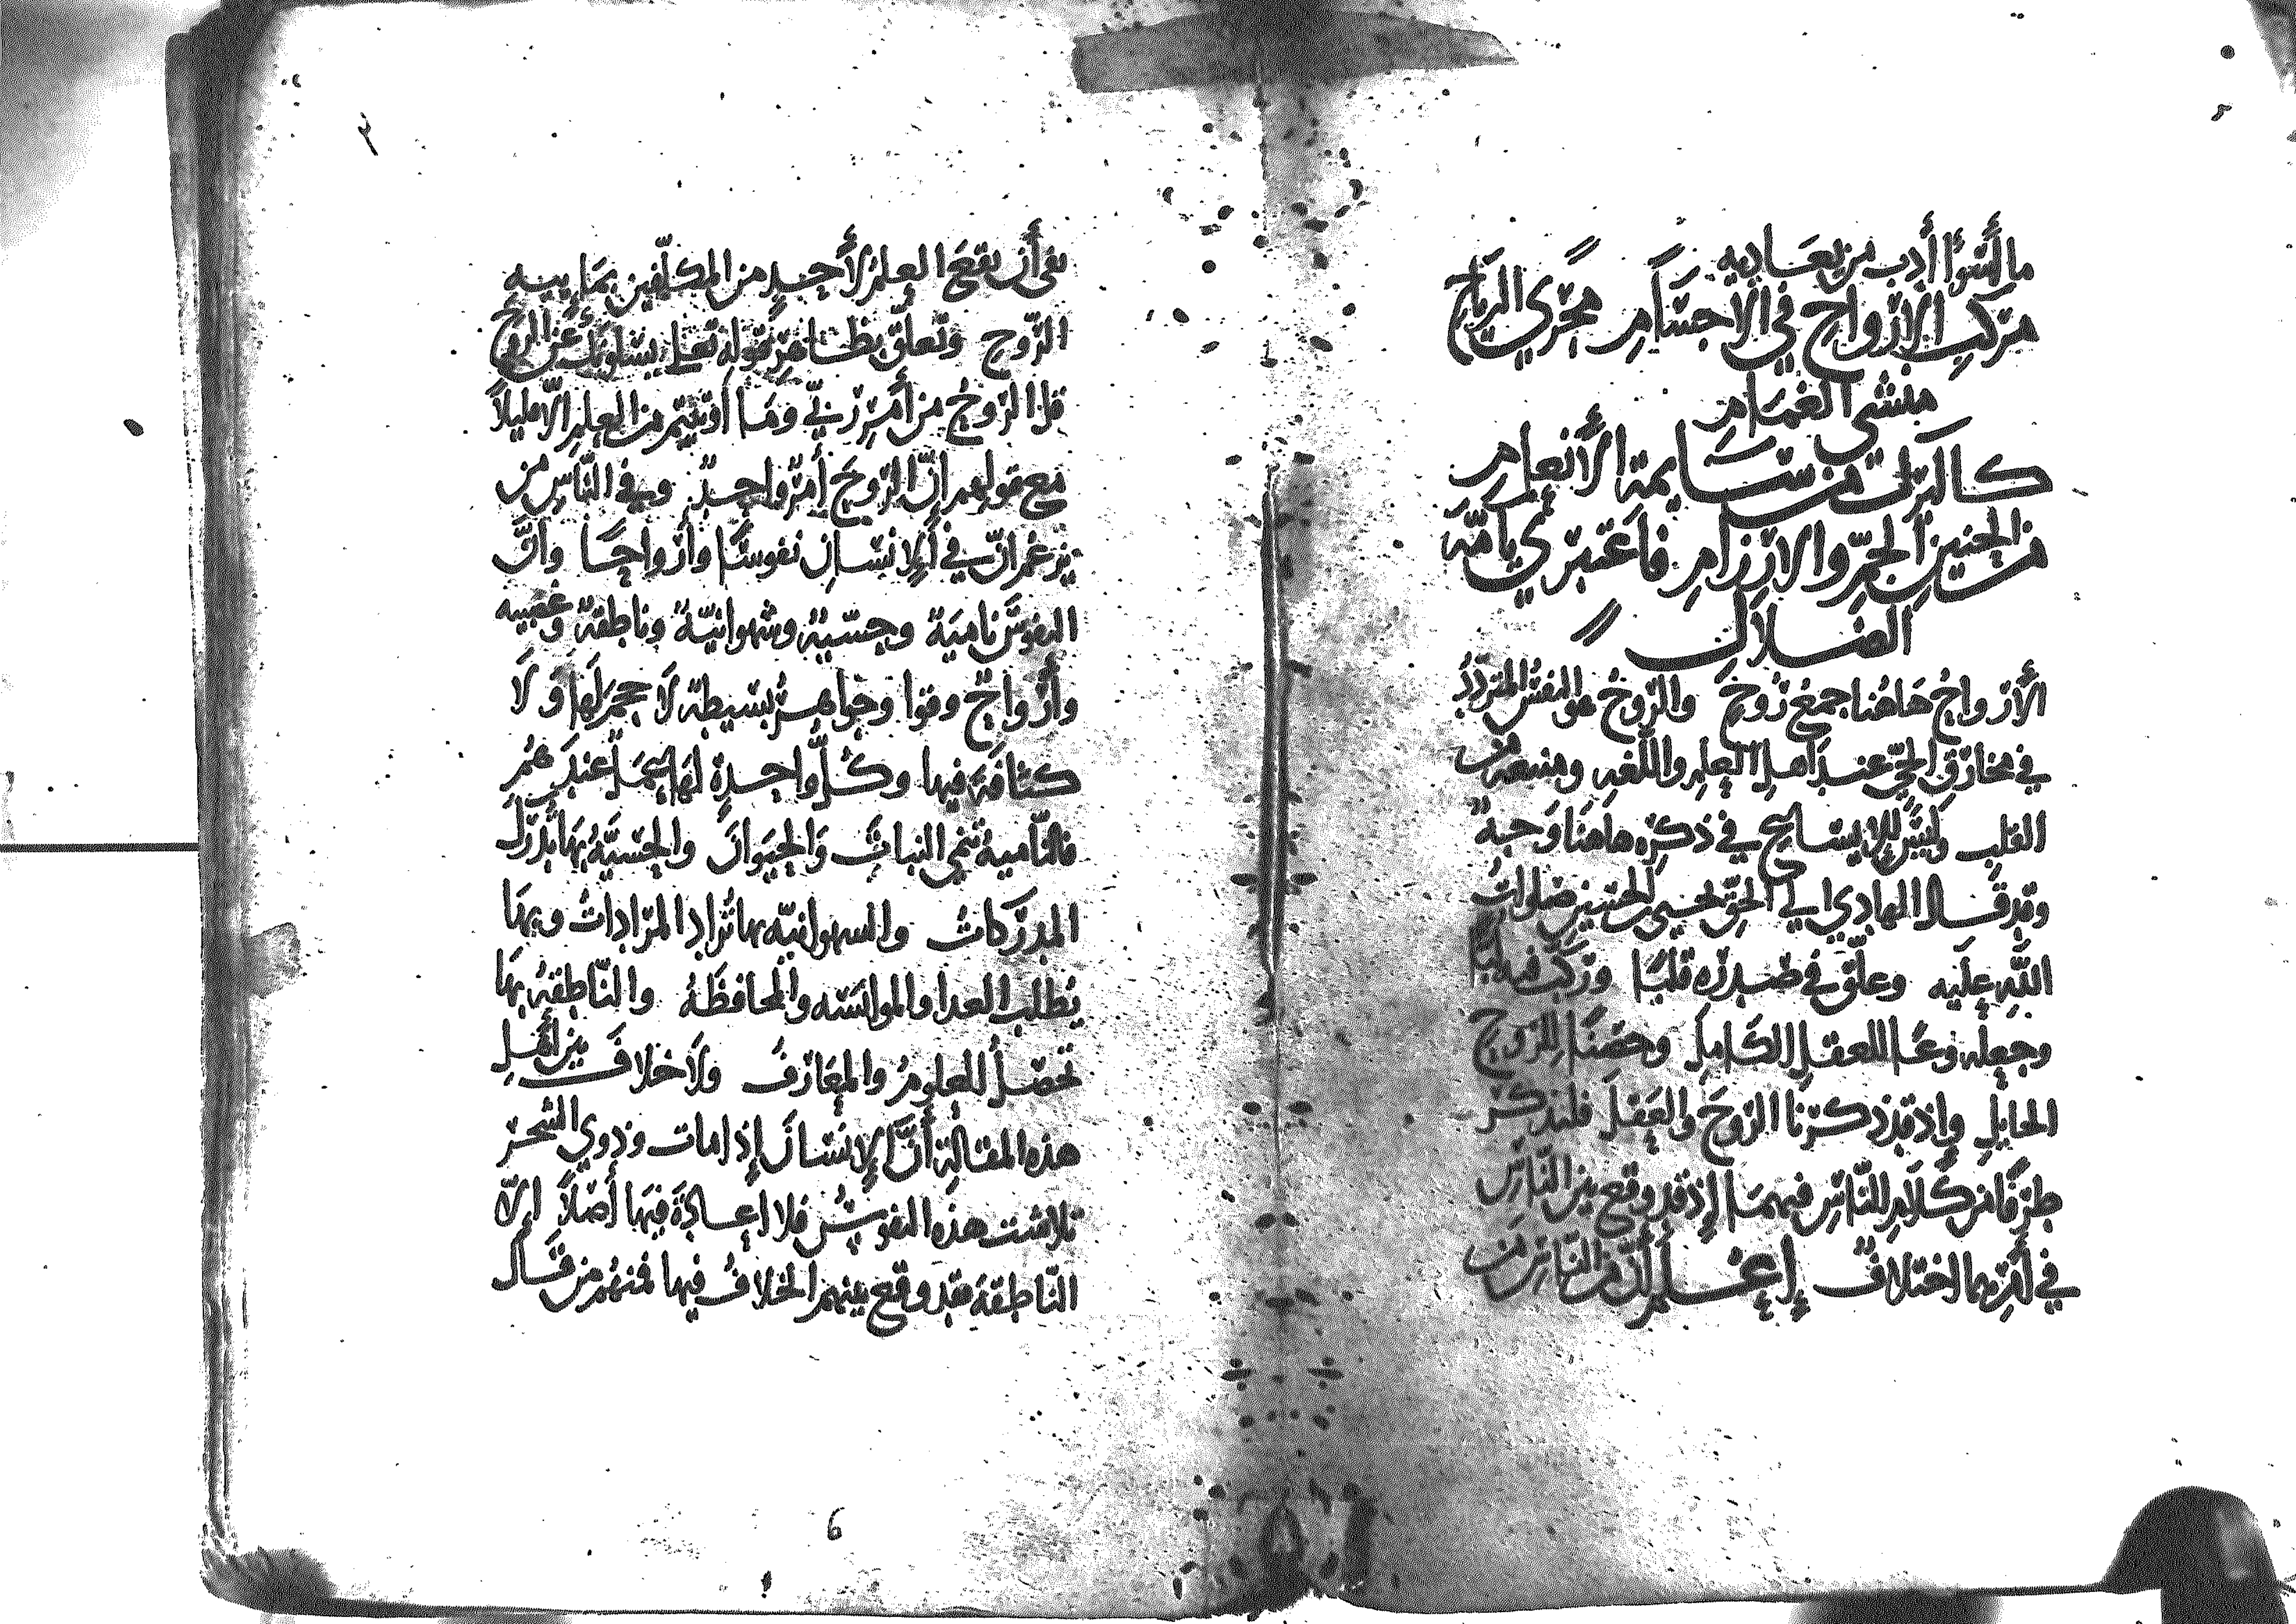 مركب الارواح في الاجسام مجري الرياح
منشي الغمام
كالبزل من سايمة الأنعام
من الحنين الجم والارزام فاعتبري يا مة
الضلال
الأرواح هاهنا جمع روح والروح هو النفس المتردد
في مخارق الحي عند اهل العلم واللغه ومنبعه من
القلب وليس للايساح في ذكره هاهنا وجه
وقد قال الهادي الى الحق يحيى بن الحسين صلوات
الله عليه وعلق في صدره قلبا وركب فيه لبا
وجعله وعا للعقل الكامل وحصنا للروح
الجايل واذ قد ذكرنا الروح والعقل فلنذكر
طرفا من كلام للناس فيهما إذ قد وقع بين الناس
في أمرهما اختلاف إعلم أن من الناس من
٢
نفى أن يقع العلم لأحد من المكلفين بماييه
الروح وتعلق بظاهر قوله تعلى يسلونك عن الروح
قل الروح من أمر ربي وما أوتيتم من العلم إلا قليلا
مع قولهم إن الروح أمر واحد وفي الناس من
يزعم ان في الإنسان نفوسا وأرواحا وان
النفوس نامية وحسية وشهوانية وناطقة وغضبيه
وأرواح وقوا وجواهر بسيطة لا حجم لها ولا
كثافة فيها وكل واحدة لها عمل عندهم
فالنامية تنمي النبات والحيوان والحسية بها تدرك
المدركات والشهوانيه بها تراد المرادات وبها
يطلب العدا والموانسه والمحافظة والناطقة بها
تحصل العلوم والمعارف ولا خلاف بين أهل
هذه المقالة أن الإنسان إذا مات وذوي الشجر
تلاشت هذه النفوس فلا إعادة فيها أصلا إلا
الناطقة فقد وقع بينهم الخلاف فيها فمنهم من قال
6